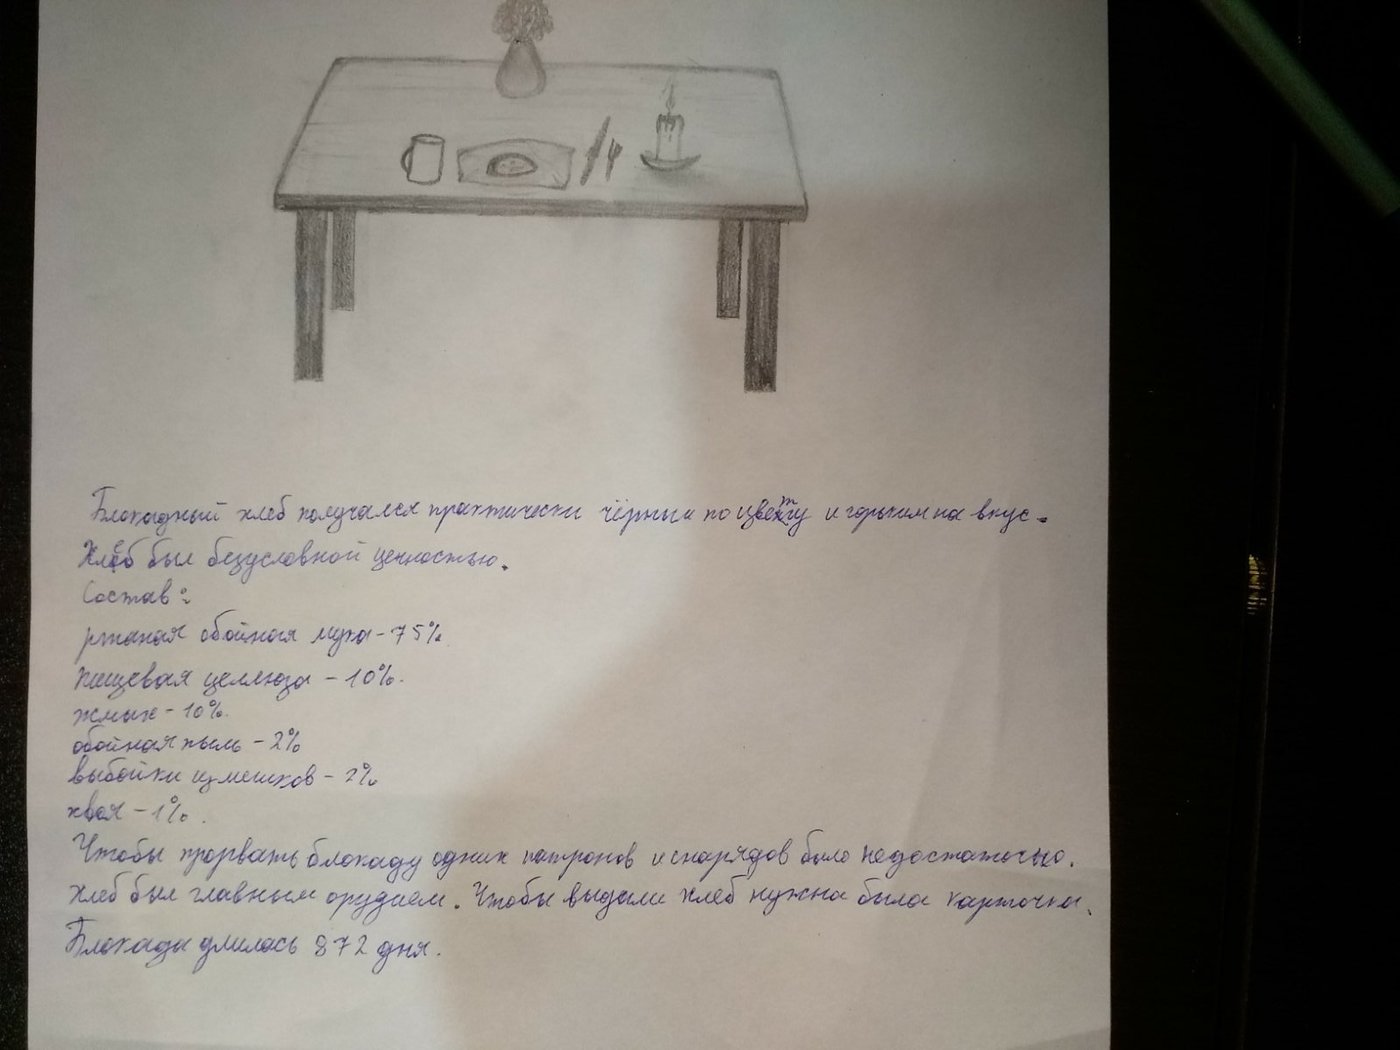 Блокадный хлеб получался практически чёрным по цвету и горьким на вкус.
Хлеб был безусловной ценностью.
Состав:
ржаная обойная мука - 75%
пищевая целлюза - 10%.
жмых - 10%.
обойная пыль - 2%
выбойки из мешков - 2%
хвоя - 1%.
Чтобы прорвать блокаду одних патронов и снарядов было недостаточно.
Хлеб был главным орудием. Чтобы выдали хлеб нужна была карточка.
Блокада длилась 872 дня.